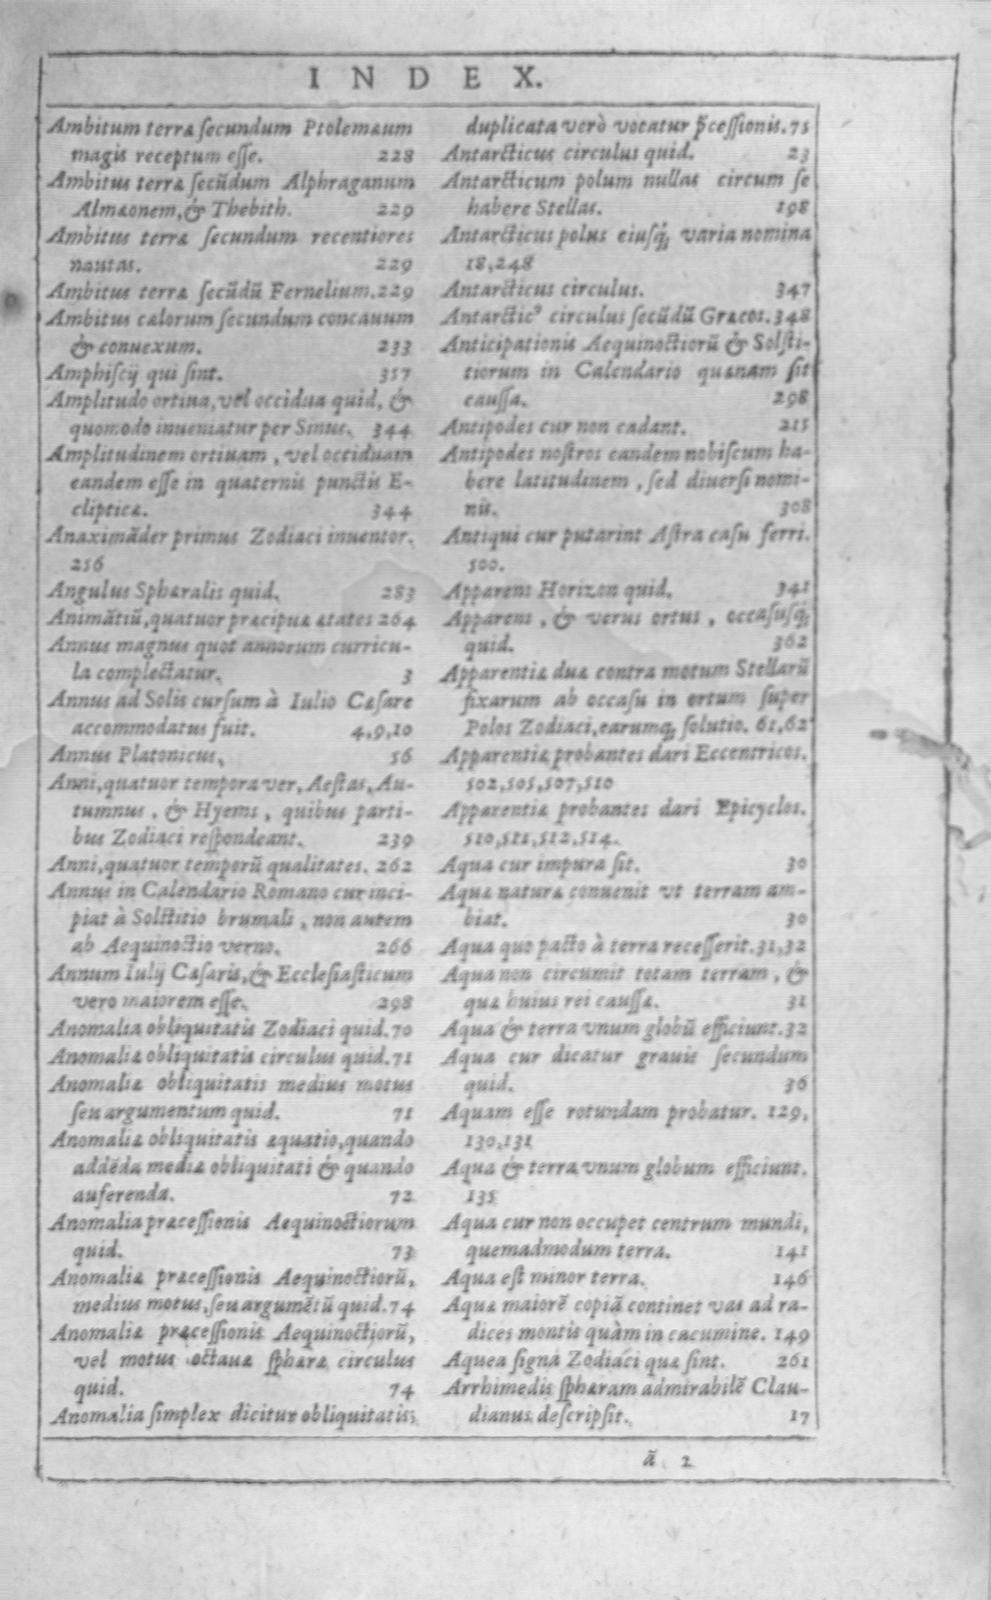 INDEX.
Ambitum terræ ſecundum Ptolemæum
magis receptum eſſe. 228
Ambitus terræ ſecũdum Alphraganum
Almæonem, & Thebith. 229
Ambitus terræ ſecundum recentiores
nautas. 229
Ambitus terræ ſecũdũ Fernelium. 229
Ambitus cælorum ſecundum concauum
& conuexum. 233
Amphiſcij qui ſint. 357
Amplitudo ortiua, vel occidua quid, &
quomodo inueniatur per Sinus. 344
Amplitudinem ortiuam, vel occiduam
eandem eſſe in quaternis punctis E-
clipticæ. 344
Anaximãder primus Zodiaci inuentor.
256
Angulus Sphæralis quid. 283
Animãtiũ, quatuor præcipuæ ætates 264
Annus magnus quot annorum curricu-
la complectatur. 3
Annus ad Solis curſum à Iulio Cæſare
accommodatus fuit. 4,9,10
Annus Platonicus. 56
Anni, quatuor tempora ver, Aeſtas, Au-
tumnus, & Hyems, quibus parti-
bus Zodiaci reſpondeant. 239
Anni, quatuor temporũ qualitates. 262
Annus in Calendario Romano cur inci-
piat à Solſtitio brumali, non autem
ab Aequinoctio verno. 266
Annum Iulij Cæſaris, & Eccleſiaſticum
vero maiorem eſſe. 298
Anomalia obliquitatis Zodiaci quid. 70
Anomaliæ obliquitatis circulus quid. 71
Anomaliæ obliquitatis medius motus
ſeu argumentum quid. 71
Anomaliæ obliquitatis æquatio, quando
addẽda mediæ obliquitati & quando
auferenda. 72
Anomalia præceſſionis Aequinoctiorum
quid. 73
Anomaliæ præceſſionis Aequinoctiorũ,
medius motus, ſeu argumẽtũ quid. 74
Anomaliæ præceſſionis Aequinoctiorũ,
vel motus octauæ ſphæræ circulus
quid. 74
Anomalia ſimplex dicitur obliquitatis;
duplicata verò vocatur p̃ceſſionis. 75
Antarcticus circulus quid. 23
Antarcticum polum nullas circum ſe
habere Stellas. 198
Antarcticus polus eiuſq́; varia nomina
18,248
Antarcticus circulus. 347
Antarcticꝰ circulus ſecũdũ Græcos. 348
Anticipationis Aequinoctiorũ & Solſti-
tiorum in Calendario quænam ſit
cauſſa. 298
Antipodes cur non cadant. 215
Antipodes noſtros eandem nobiſcum ha-
bere latitudinem, ſed diuerſi nomi-
nis. 308
Antiqui cur putarint Aſtra caſu ferri.
500.
Apparens Horizon quid. 341
Apparens, & verus ortus, occaſuſq́;
quid. 362
Apparentiæ duæ contra motum Stellarũ
fixarum ab occaſu in ortum ſuper
Polos Zodiaci, earumq; ſolutio. 61,62
Apparentiæ probantes dari Eccentricos.
502,505,507,510
Apparentiæ probantes dari Epicyclos.
510,511,512,514.
Aqua cur impura ſit. 30
Aquæ naturæ conuenit vt terram am-
biat. 30
Aqua quo pacto à terra receſſerit. 31,32
Aqua non circumit totam terram, &
quæ huius rei cauſſa. 31
Aqua & terra vnum globũ efficiunt. 32
Aqua cur dicatur grauis ſecundum
quid. 36
Aquam eſſe rotundam probatur. 129,
130,131
Aqua & terra vnum globum efficiunt.
135
Aqua cur non occupet centrum mundi,
quemadmodum terra. 141
Aqua eſt minor terra. 146
Aquæ maiorẽ copiã continet vas ad ra-
dices montis quàm in cacumine. 149
Aquea ſigna Zodiaci quæ ſint. 261
Arrhimedis ſphæram admirabilẽ Clau-
dianus deſcripſit. 17
ã 2